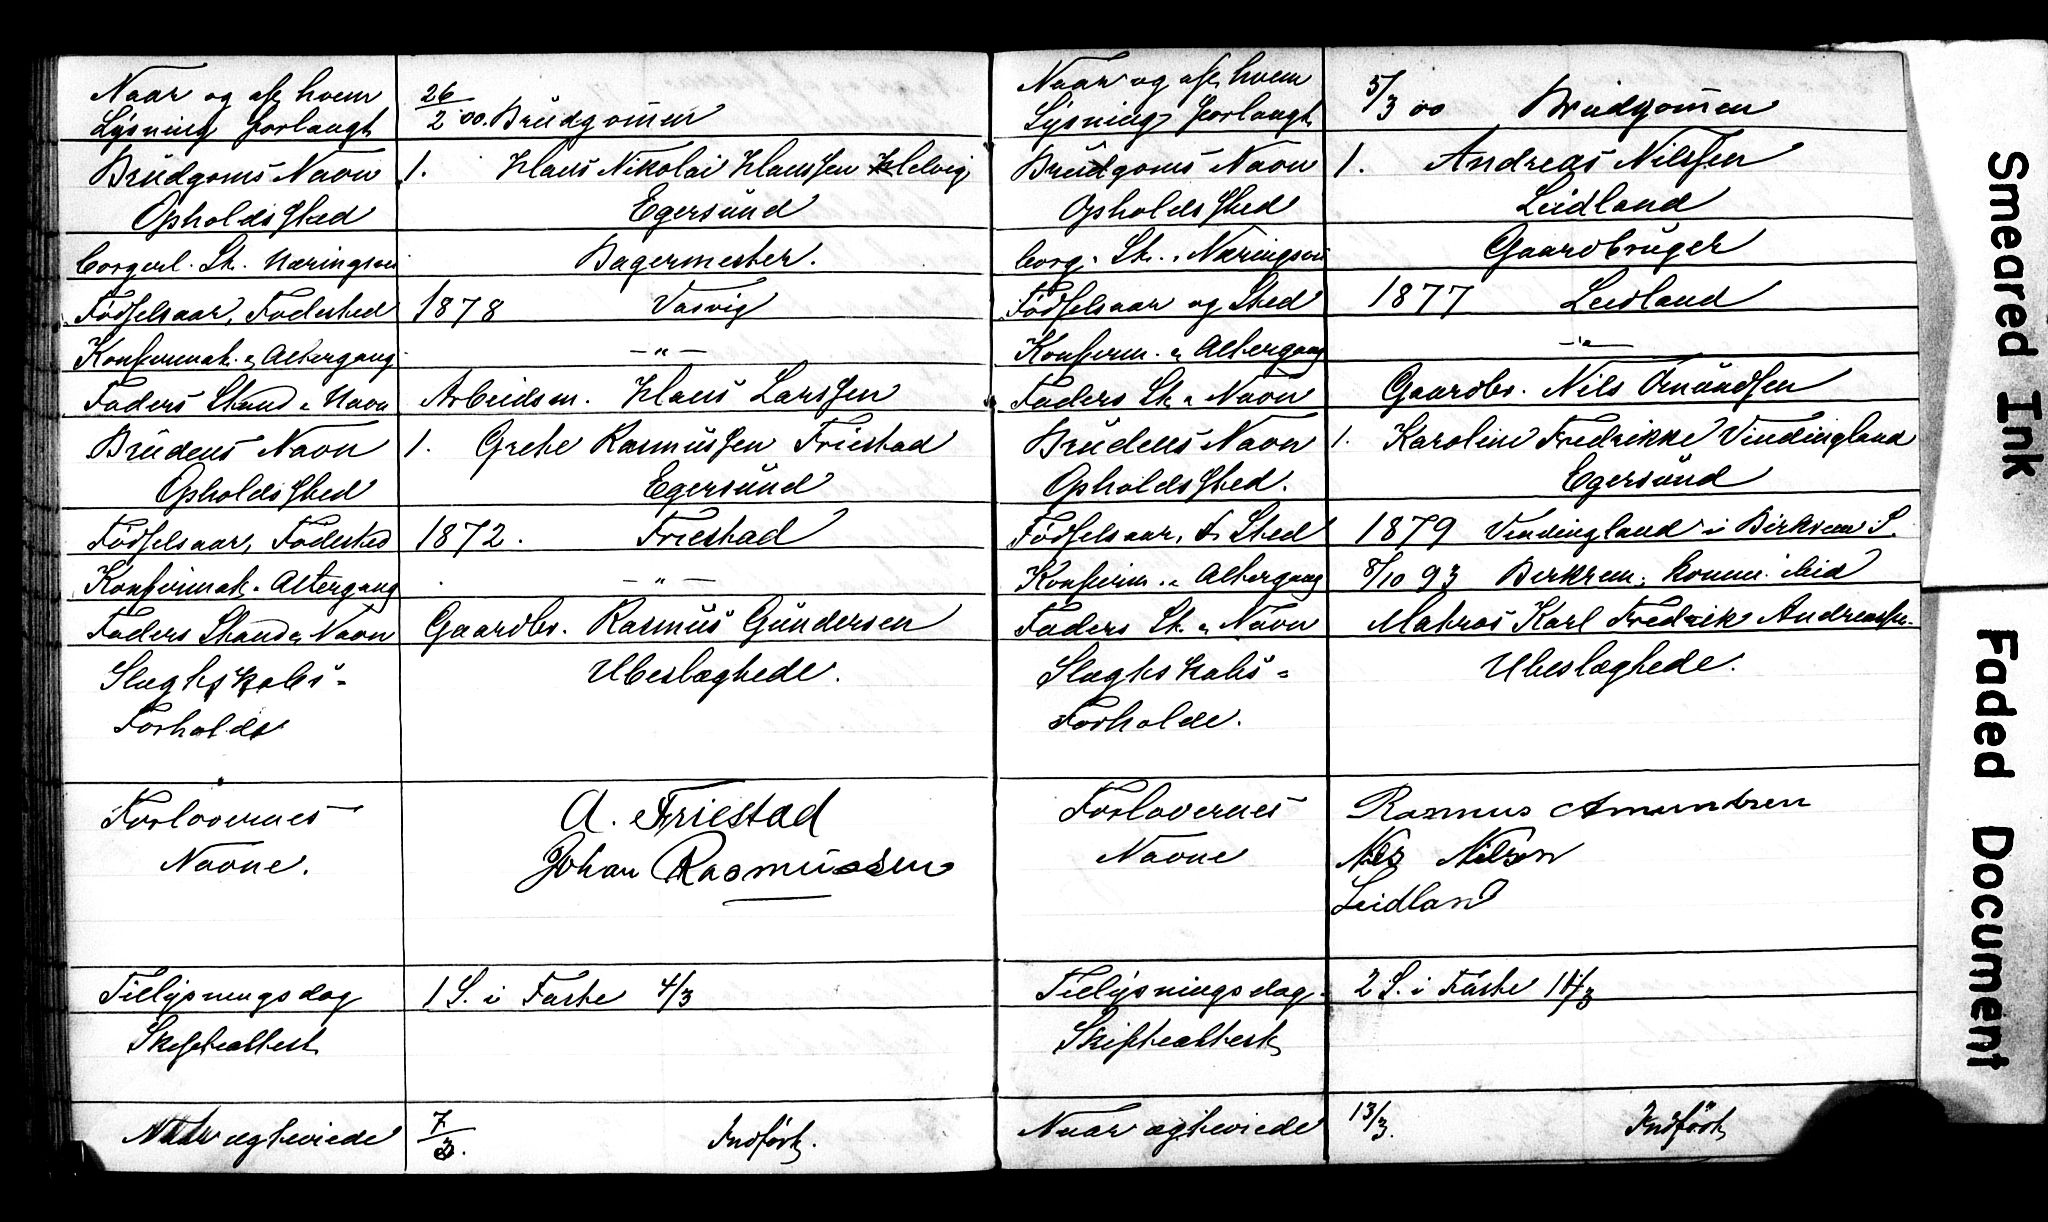 Naar og af hvem
Lysning forlangt 26/2 00. Brudgommen
Brudgoms Navn 1. Klaus Nikolai Klaussen Helvig
Opholdssted Egersund
Borgerl. St. Næringsvei Bagermester.
Födselsaar, Födested 1878 Vasvig
Konfirmat. & Altergang -"-
Faders Stand & Navn Arbeidsm. Klaus Larssen
Brudens Navn 1. Grete Rasmussen Friestad
Opholdssted Egersund
Födselsaar, Födested 1872. Friestad
Konfirmat. Altergang -"-
Faders Stand & Navn Gaardbr. Rasmus Gundersen
Slagtskabs- Ubeslægtede.
Forholde
Forlovernes A. Friestad
Navne. Johan Rasmussen
Tillysningsdag 1 S. i Faste 4/3
Skifteattest
Naar egteviede 7/3. Indfört.
Naar og af hvem
Lysning forlangt 5/3 00 Brudgommen
Brudgoms Navn 1. Andreas Nilssen
Opholdssted Leidland
borg. St. Næringsvei Gaardbruger
Födselsaar og Sted 1877 Leidland
Konfirm. & Altergang -"-
Faders St. & Navn Gaardbr. Nils Omundsen
Brudens Navn 1. Karoline Fredrikke Vindingland
Opholdssted. Egersund
Födselsaar, & Sted 1879 Vindingland i Birkrem S.
Konfirm. & Altergang 8/10 93 Berkrem; komm. ibid
Faders St. & Navn Matros Karl Fredrik Andreassen
Slagtskabs= Ubeslægtede.
Forholde.
Forlovernes Rasmus Amundsen
Navne Nils Nilsen
Leidland
Tillysningsdag. 2 S. i Faste 11/3
Skifteattest
Naar egteviede 13/3. Indfört
Smeared Ink
Faded Document